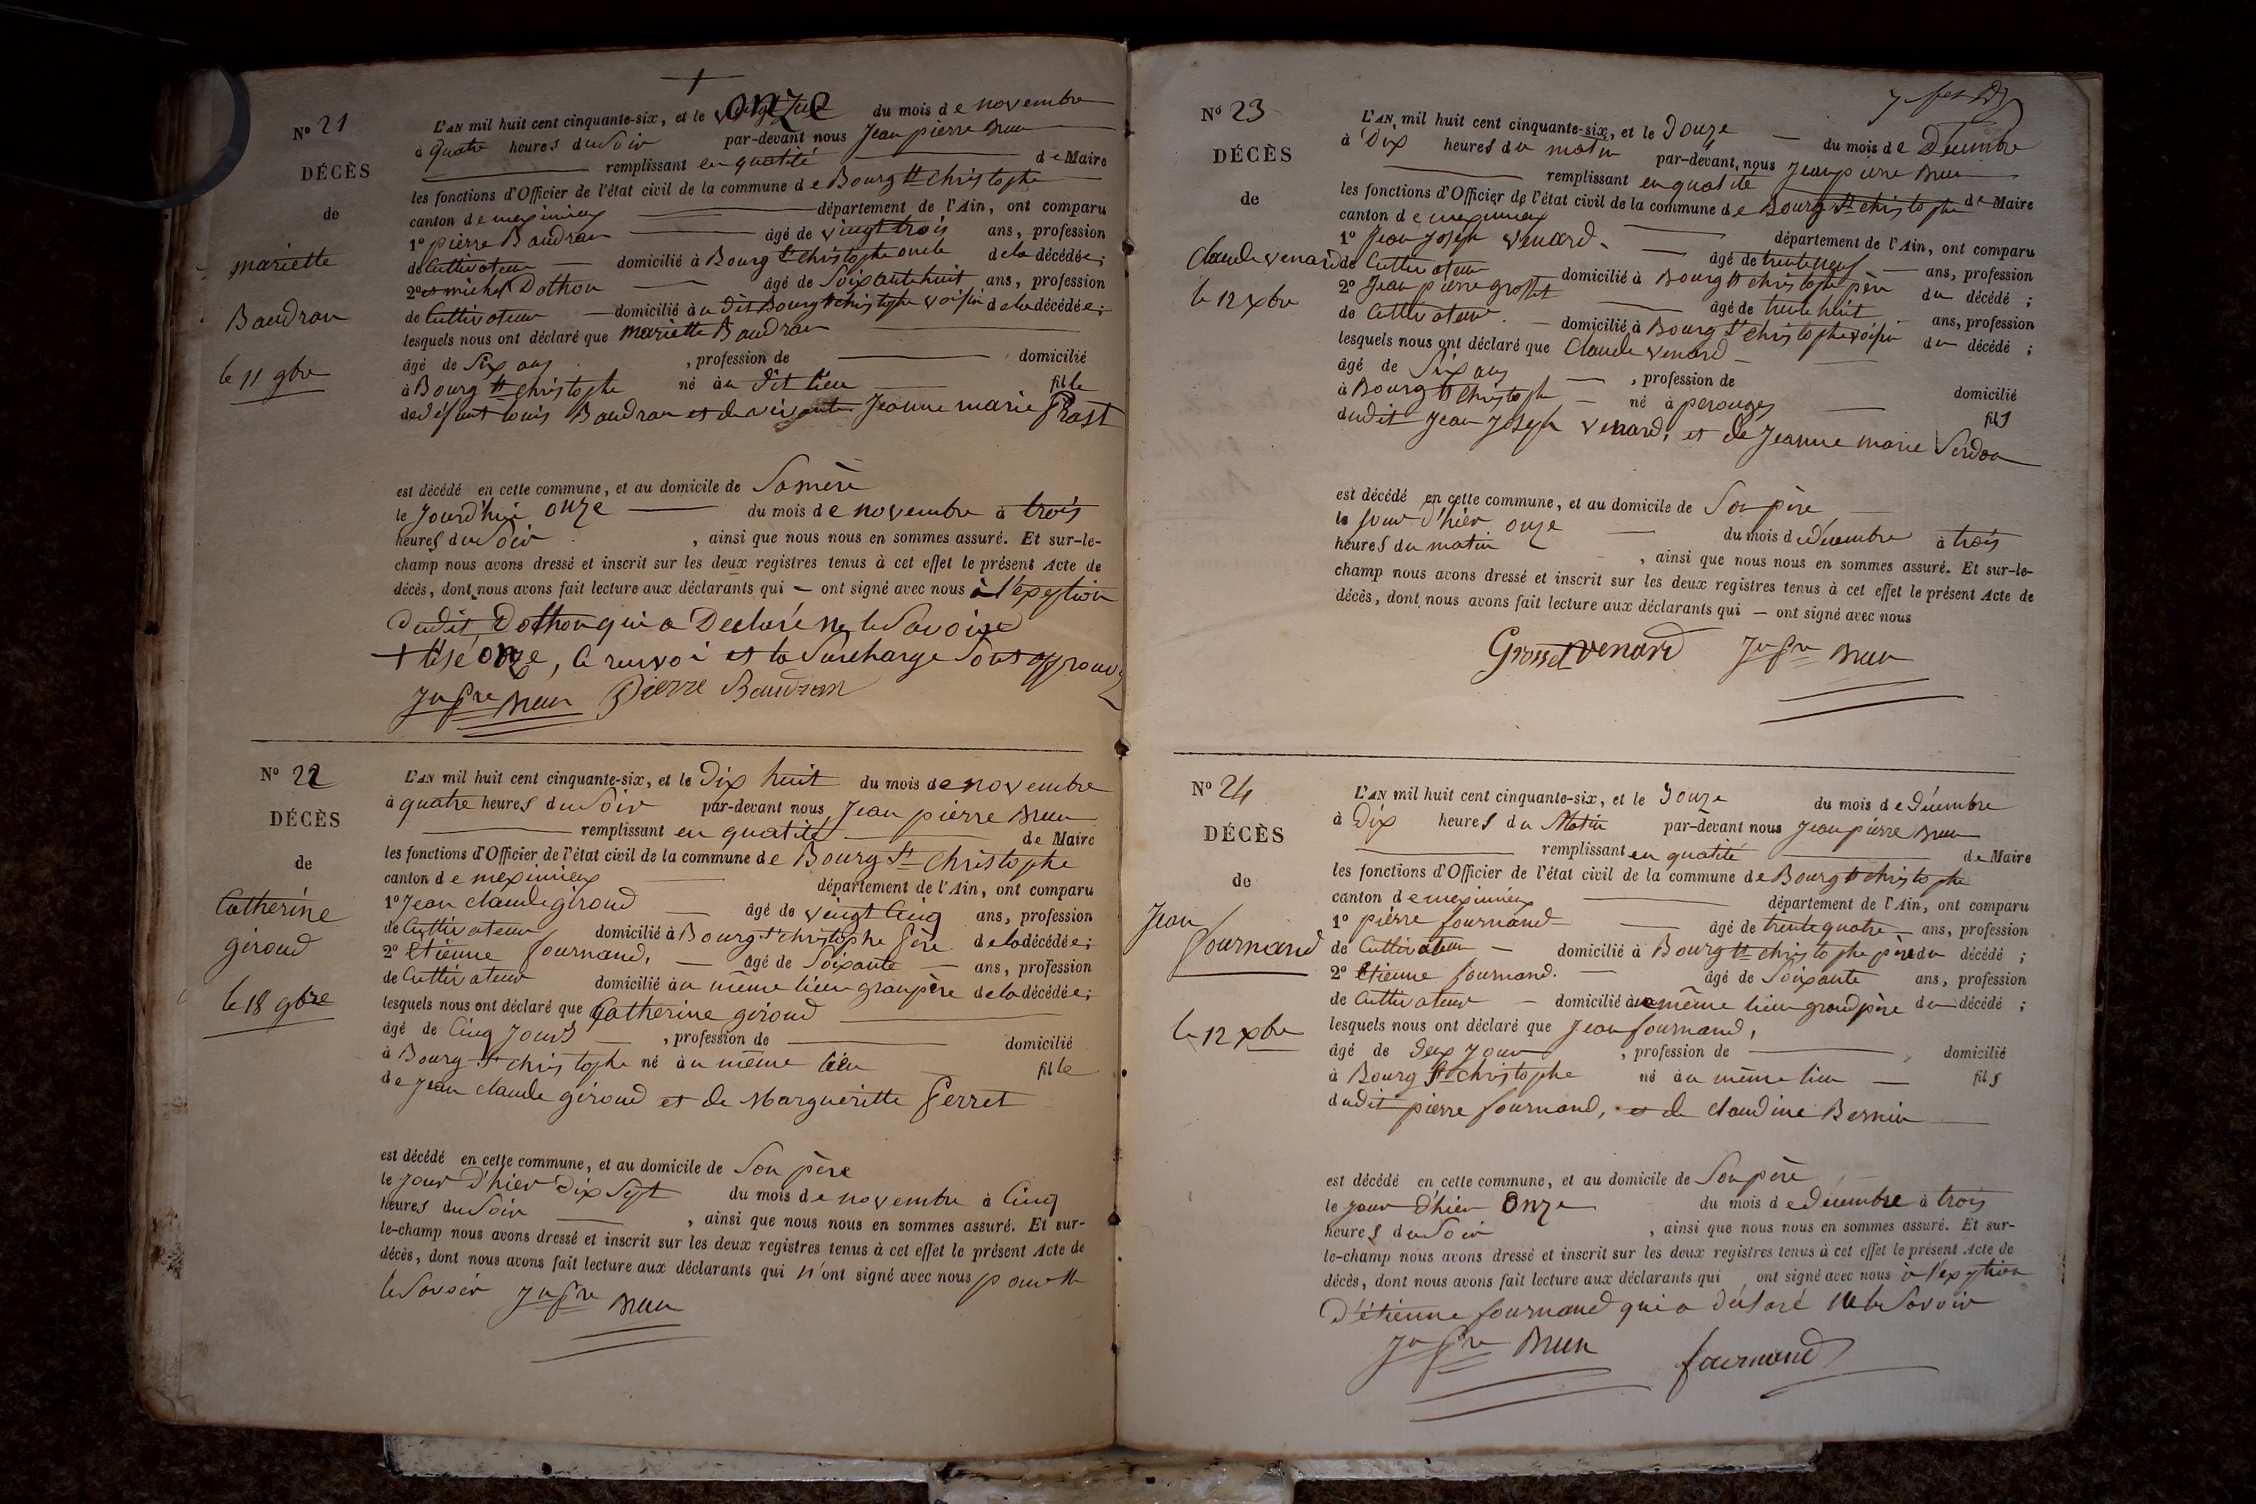 +
N° 21
DÉCÈS
de
mariette
Baudran
le 11 9bre
L'AN mil huit cent cinquante-six, et le onze du mois de novembre
à quatre heures du Soir par-devant nous Jean pierre Brun
remplissant en qualité de Maire
les fonctions d'Officier de l'état civil de la commune de Bourg St christophe
canton de meximieux département de l'Ain, ont comparu
1° pierre Baudran âgé de vingt trois ans, profession
de Cultivateur domicilié à Bourg St christophe oncle de la décédée;
2° et michel Dothon âgé de Soixante huit ans, profession
de Cultivateur domicilié au dit Bourg St christophe voisin de la décédée;
lesquels nous ont déclaré que mariette Baudran
âgé de Six ans , profession de domicilié
à Bourg St christophe né au dit lieu fille
de défunt Louis Baudran et de vivante Jeanne marie Prost
est décédé en cette commune, et au domicile de Sa mère
le Jourd'hui onze du mois de novembre à trois
heures du Soir , ainsi que nous nous en sommes assuré. Et sur-le-
champ nous avons dressé et inscrit sur les deux registres tenus à cet effet le présent Acte de
décès, dont nous avons fait lecture aux déclarants qui ont signé avec nous à l'exeption
dudit Dothon qui a Declaré ne le Savoire
+ lisé onze, le renvoi et la Surcharge Sont approuvé
Jn pre Brun Pierre Baudran
N° 22
DÉCÈS
de
Catherine
giroud
le 18 9bre
L'AN mil huit cent cinquante-six, et le Dix huit du mois de novembre
à quatre heures du Soir par-devant nous Jean pierre Brun
remplissant en qualité de Maire
les fonctions d'Officier de l'état civil de la commune de Bourg St christophe
canton de meximieux département de l'Ain, ont comparu
1° Jean claude giroud âgé de vingt Cinq ans, profession
de Cultivateur domicilié à Bourg St christophe père de la décédée;
2° Etienne fournand, âgé de Soixante ans, profession
de Cultivateur domicilié au même lieu granpère de la décédée;
lesquels nous ont déclaré que Catherine giroud
âgé de Cinq Jours , profession de domicilié
à Bourg St christophe né au même lieu fille
de Jean claude giroud et de Margueritte Perret
est décédé en cette commune, et au domicile de Son père
le jour d'hier Dix Sept du mois de novembre à Cinq
heures du Soir , ainsi que nous nous en sommes assuré. Et sur-
le-champ nous avons dressé et inscrit sur les deux registres tenus à cet effet le présent Acte de
décès, dont nous avons fait lecture aux déclarants qui n'ont signé avec nous pour ne
le Savoir Jn pre Brun
N° 23
DÉCÈS
de
Claude venard
le 12 xbre
L'AN mil huit cent cinquante-six, et le Douze du mois de Décembre
à Dix heures du matin par-devant nous Jean pierre Brun
remplissant en qualité de Maire
les fonctions d'Officier de l'état civil de la commune de Bourg St christophe
canton de meximieux département de l'Ain, ont comparu
1° Jean Joseph venard âgé de trente neuf ans, profession
de Cultivateur domicilié à Bourg St christophe père du décédé ;
2° Jean pierre grosset âgé de trente huit ans, profession
de Cultivateur domicilié à Bourg St christophe voisin du décédé ;
lesquels nous ont déclaré que Claude venard
âgé de Six ans , profession de domicilié
à Bourg St christophe né à perouges fils
dudit Jean Joseph venard, et de Jeanne marie Verdon
est décédé en cette commune, et au domicile de Son père
le jour d'hier onze du mois de décembre à trois
heures du matin , ainsi que nous nous en sommes assuré. Et sur-le-
champ nous avons dressé et inscrit sur les deux registres tenus à cet effet le présent Acte de
décès, dont nous avons fait lecture aux déclarants qui ont signé avec nous
Grosset venard Jn pre Brun
N° 24
DÉCÈS
de
Jean
fournand
le 12 xbre
L'AN mil huit cent cinquante-six, et le Douze du mois de Décembre
à Dix heures du Matin par-devant nous Jean pierre Brun
remplissant en qualité de Maire
les fonctions d'Officier de l'état civil de la commune de Bourg St christophe
canton de meximieux département de l'Ain, ont comparu
1° pierre fournand âgé de trente quatre ans, profession
de Cultivateur domicilié à Bourg St christophe père du décédé ;
2° Etienne fournand. âgé de Soixante ans, profession
de Cultivateur domicilié au même lieu grand père du décédé ;
lesquels nous ont déclaré que Jean fournand,
âgé de Deux jour , profession de domicilié
à Bourg St christophe né au même lieu fils
dudit pierre fournand, et de claudine Bernin
est décédé en cette commune, et au domicile de Son père
le jour d'hier Onze du mois de Décembre à trois
heures du Soir , ainsi que nous nous en sommes assuré. Et sur-
le-champ nous avons dressé et inscrit sur les deux registres tenus à cet effet le présent Acte de
décès, dont nous avons fait lecture aux déclarants qui ont signé avec nous à l'exeption
D'étienne fournand qui a déclaré ne le Savoir
Jn pre Brun fournand